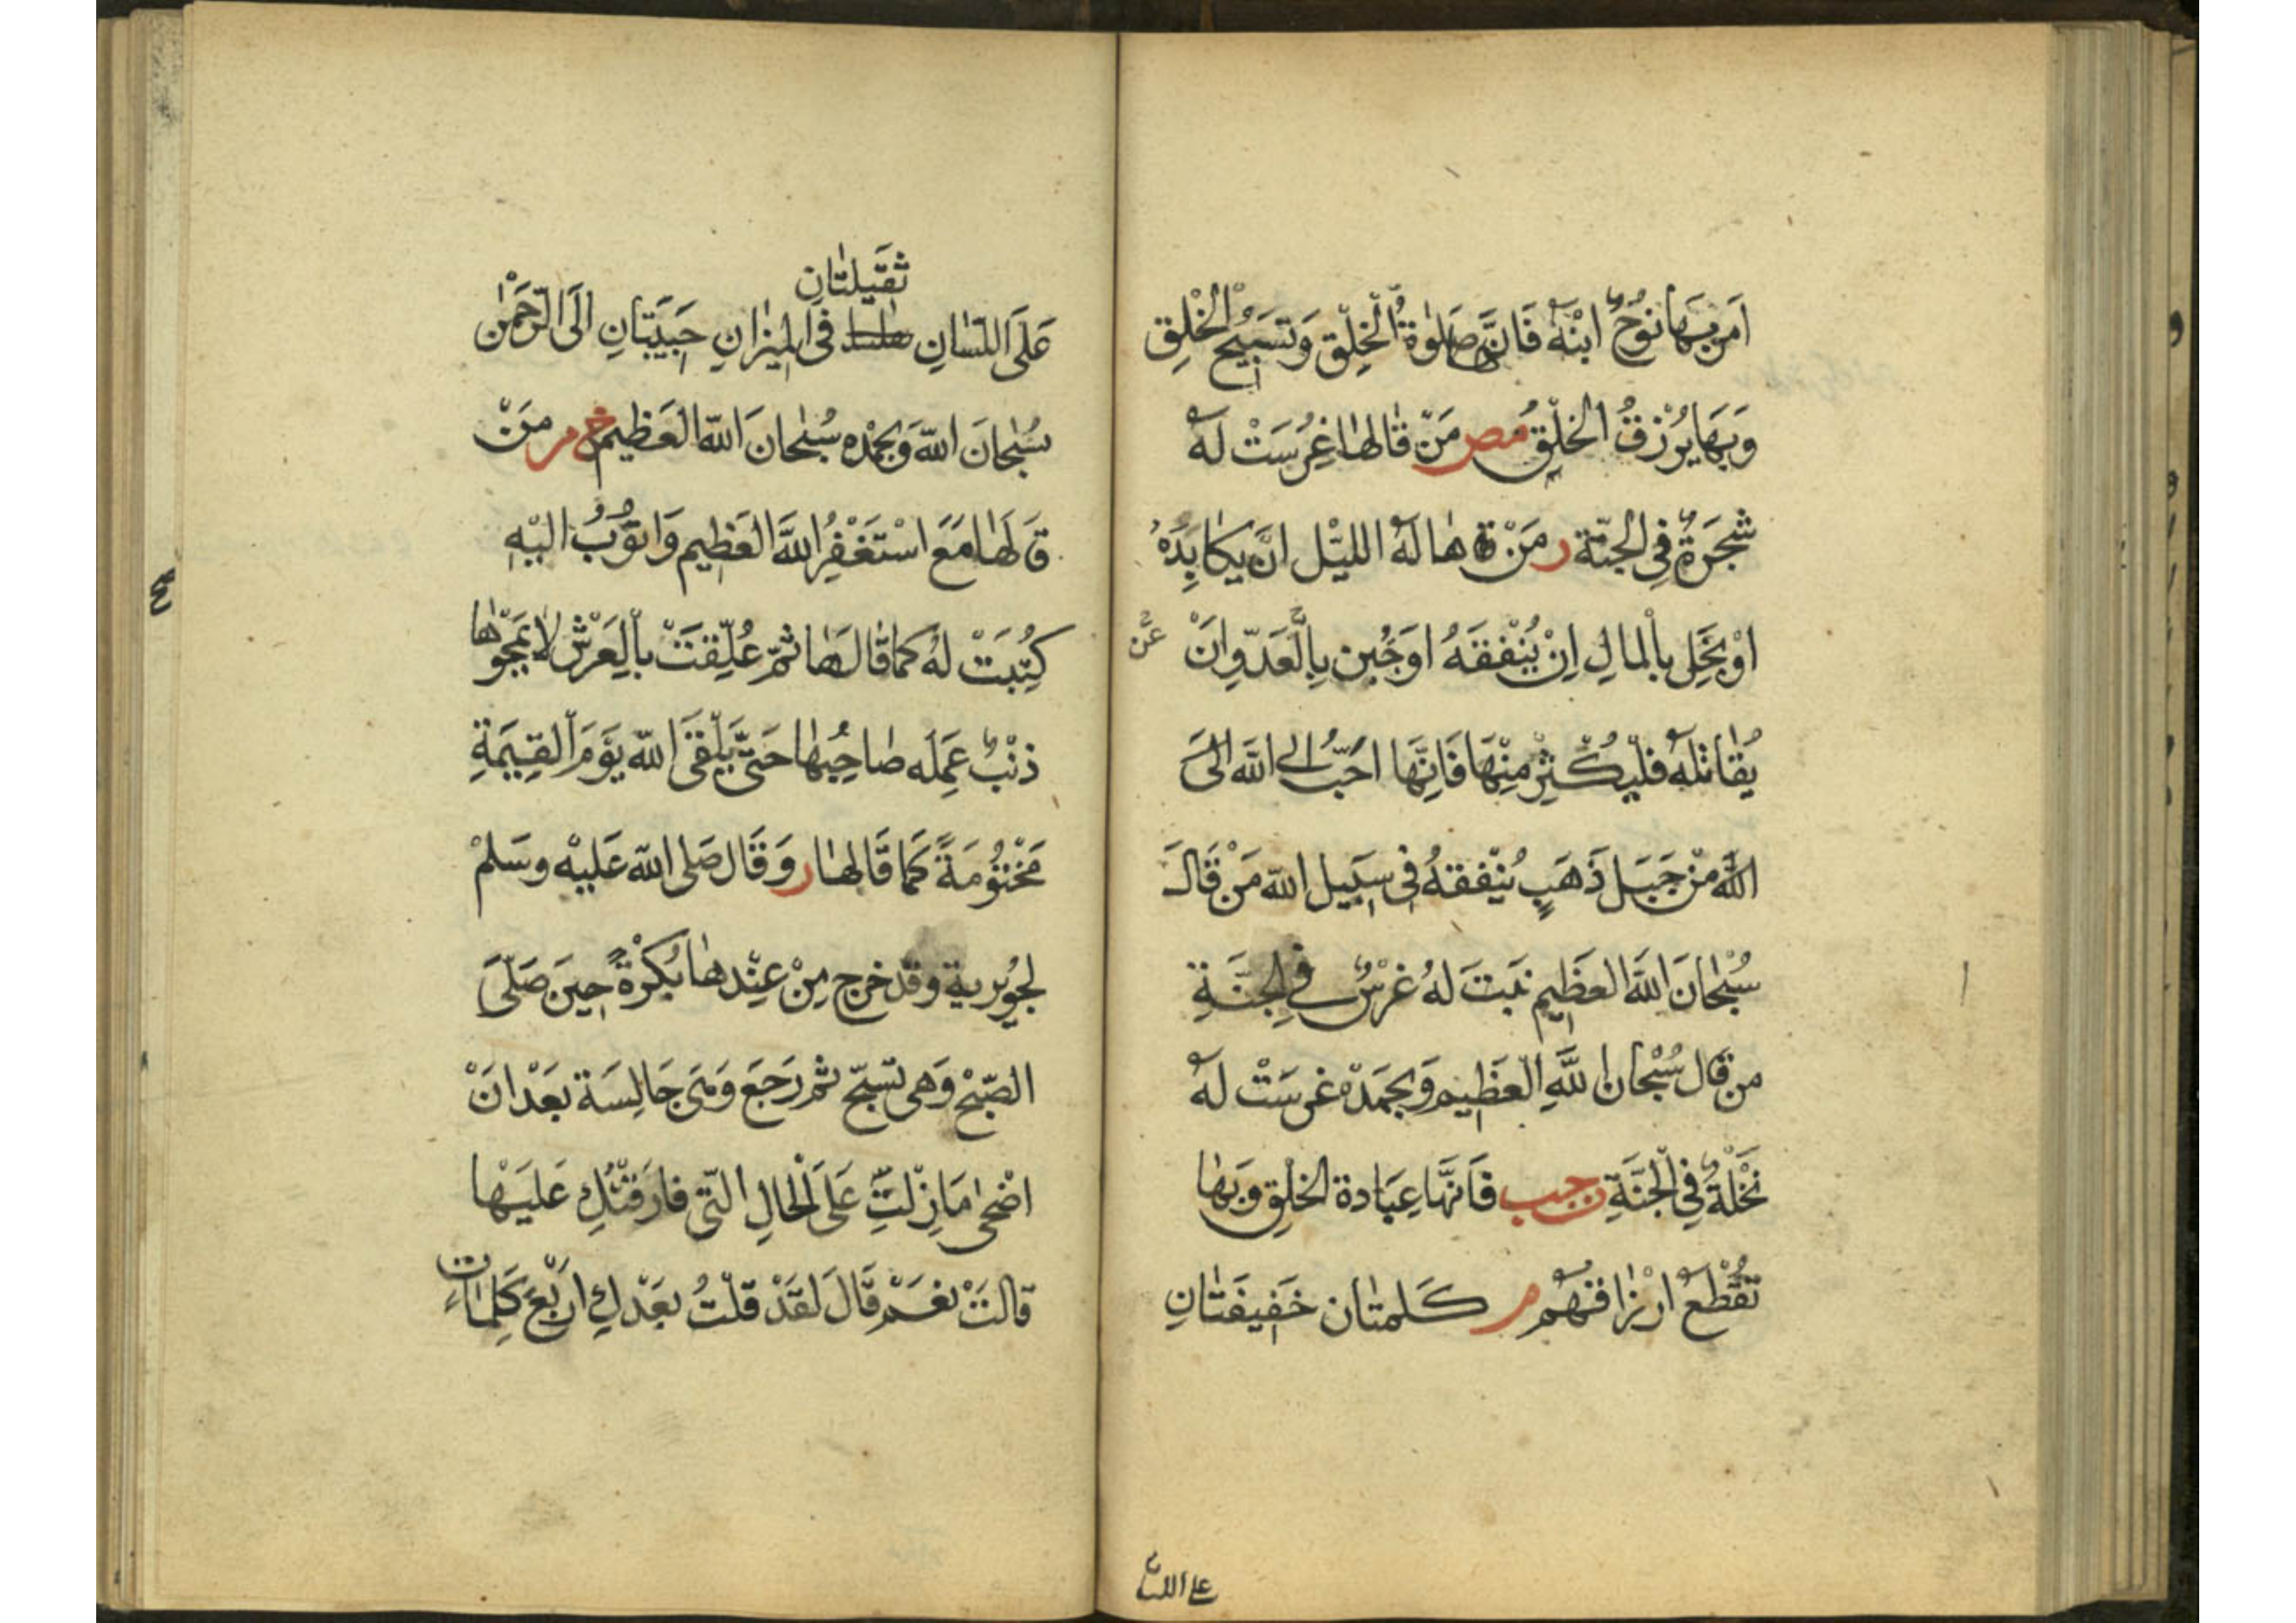 اَمَرَ بِهَا نُوحٌ ابْنَهُ فَاِنَّهَا صَلٰوةُ الْخَلْقِ وَتَسْبِيحُ الْخَلْقِ
وَبِهَا يُرْزَقُ الْخَلْقُ مص مَنْ قَالَهَا غُرِسَتْ لَهُ
شَجَرَةٌ فِي الْجَنَّةِ ر مَنْ هَالَهُ اللَّيْلُ اَنْ يُكَابِدَهُ
اَوْ بَخِلَ بِالْمَالِ اِنْ يُنْفِقَهُ اَوْ جَبُنَ بِالْعَدُوِّ اَنْ عَنْ
يُقَاتِلَهُ فَلْيُكْثِرْ مِنْهَا فَاِنَّهَا اَحَبُّ اِلَى اللّٰهِ اِلَى
اللّٰهِ مِنْ جَبَلِ ذَهَبٍ يُنْفِقُهُ فِي سَبِيلِ اللّٰهِ مَنْ قَالَ
سُبْحَانَ اللّٰهِ الْعَظِيمِ نَبَتَ لَهُ غَرْسٌ فِي الْجَنَّةِ
مَنْ قَالَ سُبْحَانَ اللّٰهِ الْعَظِيمِ وَبِحَمْدِهِ غُرِسَتْ لَهُ
نَخْلَةٌ فِي الْجَنَّةِ فَاِنَّهَا عِبَادَةُ الْخَلْقِ وَبِهَا
تُقْطَعُ اَرْزَاقُهُمْ ر كَلِمَتَانِ خَفِيفَتَانِ
على اللسان
ثَقِيلَتَانِ
عَلَى اللِّسَانِ فِي الْمِيزَانِ حَبِيبَتَانِ اِلَى الرَّحْمٰنِ
سُبْحَانَ اللّٰهِ وَبِحَمْدِهِ سُبْحَانَ اللّٰهِ الْعَظِيمِ خ م مَنْ
قَالَهَا مَعَ اَسْتَغْفِرُ اللّٰهَ الْعَظِيمَ وَاَتُوبُ اِلَيْهِ
كُتِبَتْ لَهُ كَمَا قَالَهَا ثُمَّ عُلِّقَتْ بِالْعَرْشِ لَا يَمْحُوهَا
ذَنْبٌ عَمِلَهُ صَاحِبُهَا حَتَّى يَلْقَى اللّٰهَ يَوْمَ الْقِيٰمَةِ
مَخْتُومَةً كَمَا قَالَهَا ر وَقَالَ صَلَّى اللّٰهُ عَلَيْهِ وَسَلَّمْ
لِجُوَيْرِيَةَ وَقَدْ خَرَجَ مِنْ عِنْدِهَا بُكْرَةً حِينَ صَلَّى
الصُّبْحَ وَهِيَ تُسَبِّحُ ثُمَّ رَجَعَ وَهِيَ جَالِسَةٌ بَعْدَ اَنْ
اَضْحٰى مَا زِلْتِ عَلَى الْحَالِ الَّتِي فَارَقْتُكِ عَلَيْهَا
قَالَتْ نَعَمْ قَالَ لَقَدْ قُلْتُ بَعْدَكِ اَرْبَعَ كَلِمَاتٍ